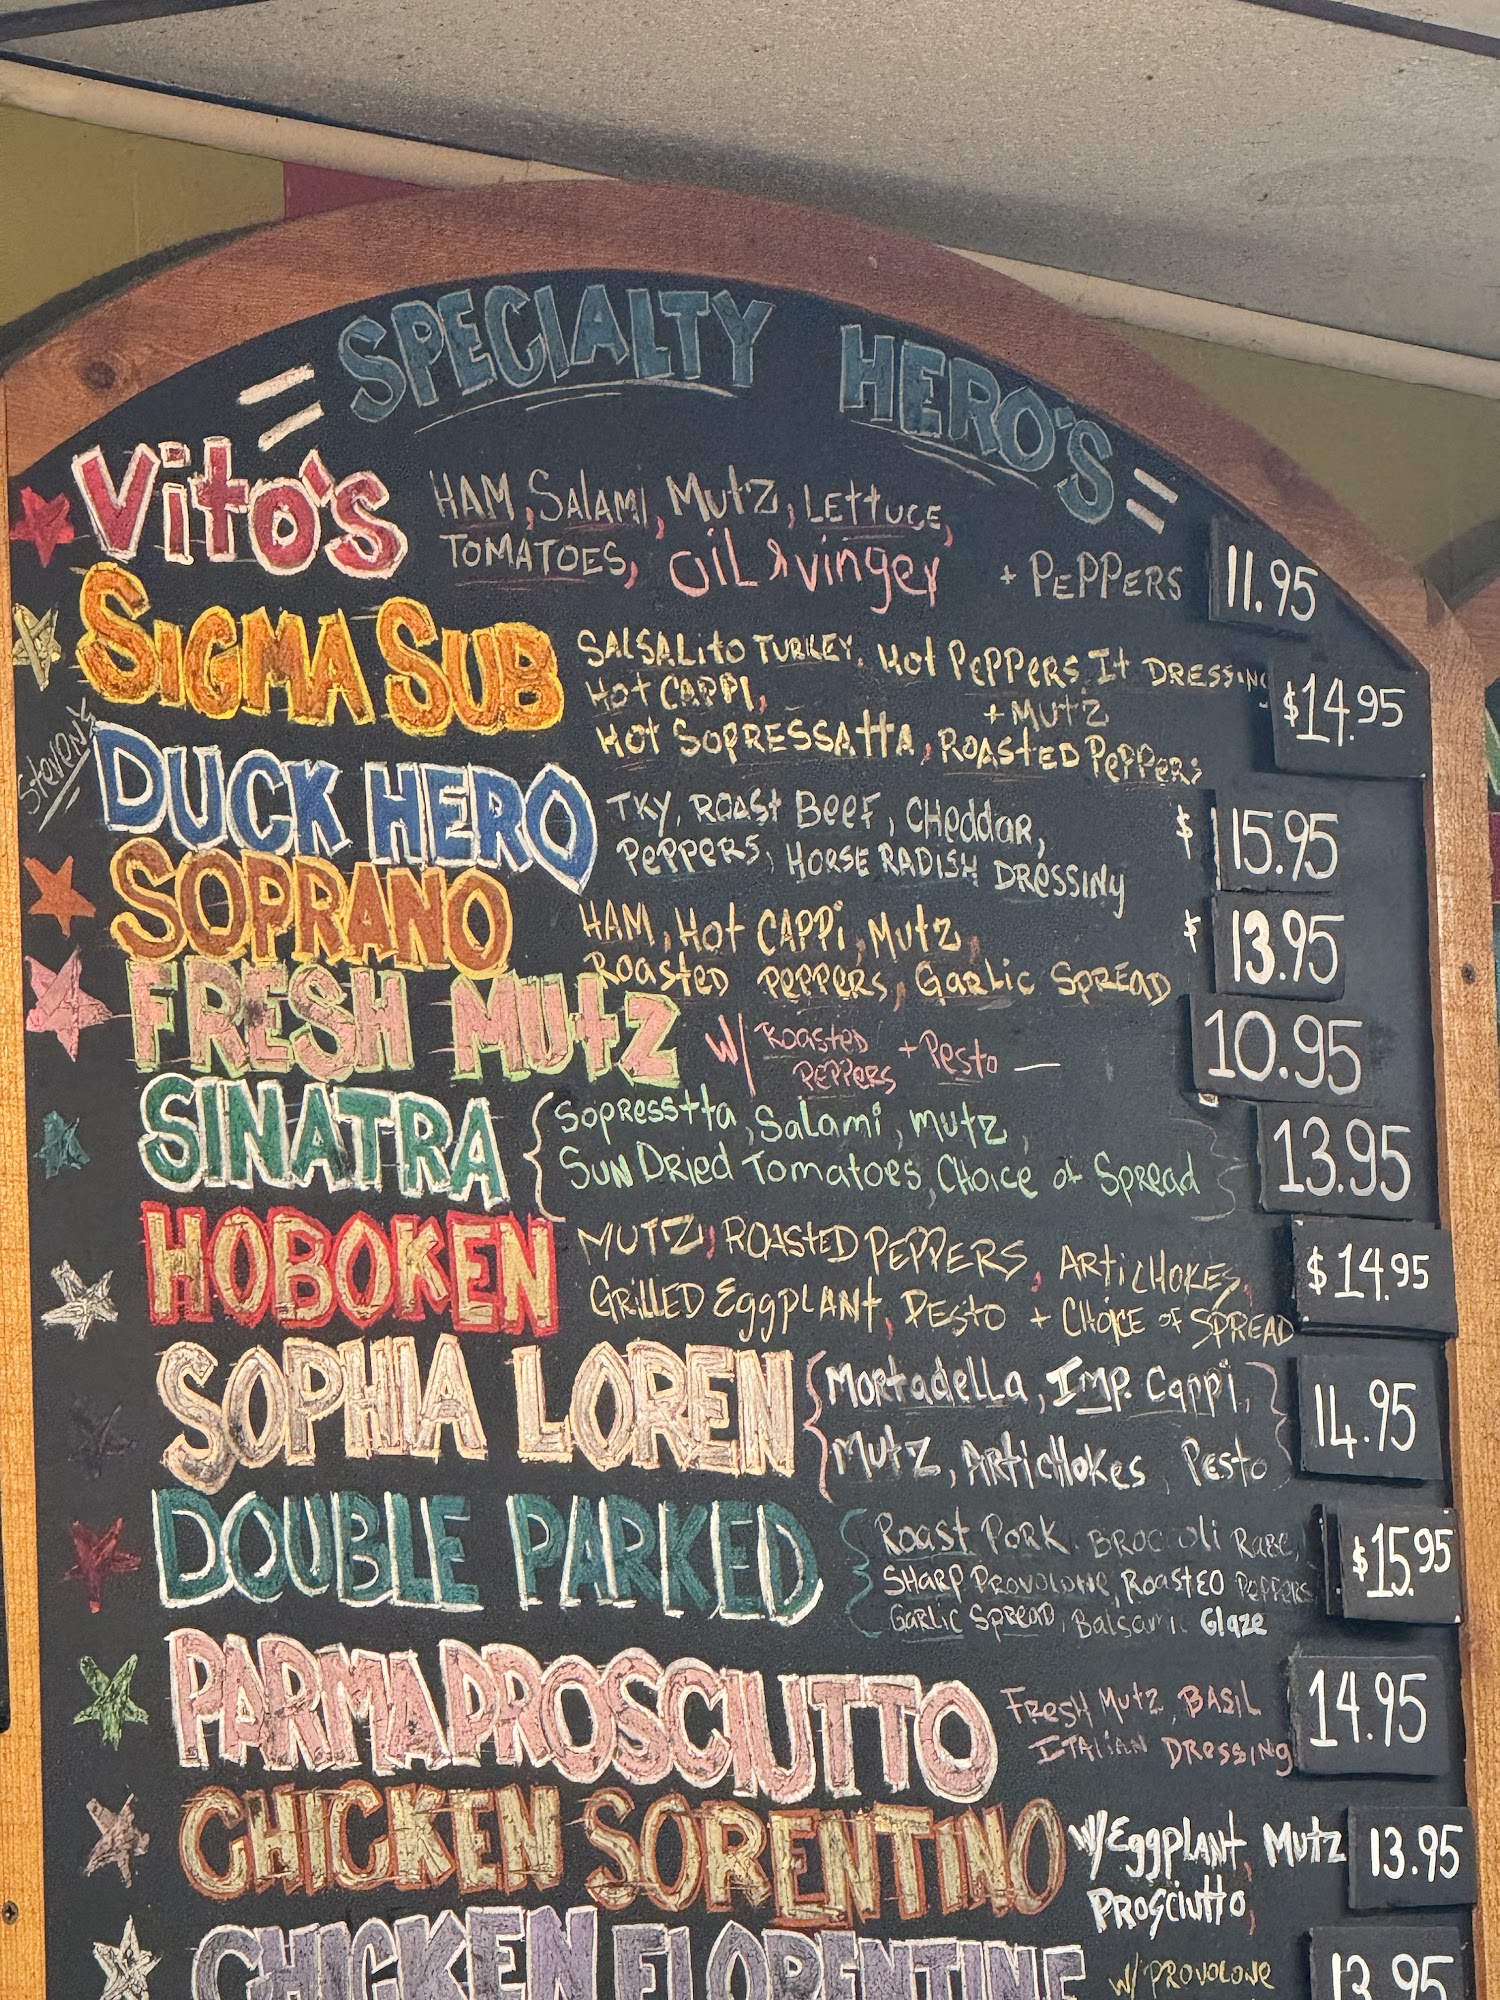 = SPECIALTY HERO'S =
Vito's HAM, SALAMI, MUTZ, LETTUCE,
TOMATOES, OiL & vinger + PEPPERS 11.95
SIGMA SUB SALSALITO TURKEY, HOT PEPPERS, It DRESSING
HOT CAPPI, + MUTZ $14.95
HOT SOPRESSATTA, ROASTED PEPPERS
STEVEN'S
DUCK HERO TKY, ROAST BEEF, CHeddar, $ 15.95
PEPPERS, HORSE RADISH DRESSINg
SOPRANO HAM, HOT CAPPI, MUTZ, $ 13.95
ROASTED PEPPERS, GARLIC SPREAD
FRESH MUTZ W/ ROASTED PEPPERS + Pesto — 10.95
SINATRA { Sopresstta, Salami, mutz, 13.95
SUN DRied Tomatoes, CHoice of Spread }
HOBOKEN MUTZ, ROASTED PEPPERS, ARTICHOKES, $14.95
GRILLED EggPLANT, PESTO + CHOICE OF SPREAD
SOPHIA LOREN { MORtadella, IMP. Cappi, } 14.95
MUTZ, ARTiCHOKes, Pesto
DOUBLE PARKED { Roast PORK, BROCCOLI RABE, $15.95
SHARP PROVOLONE, ROASTED PEPPERS,
GARLIC SPREAD, Balsamic Glaze
PARMAPROSCIUTTO FRESH MUTZ, BASIL 14.95
ITALIAN DRESSINg
CHICKEN SORENTINO W/ EggPLANT, MUTZ 13.95
PROSCiuttO,
CHICKEN FLORENTINE W/ PROVOLONE 13.95